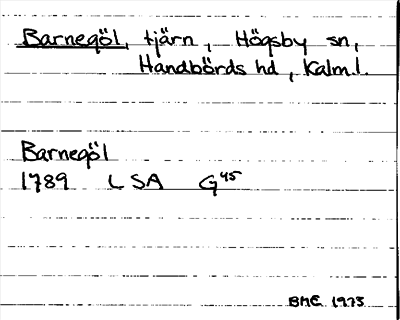 Barnegöl, tjärn, Högsby sn,
Handbörds hd, Kalm.l.
Barnegöl
1789 LSA G45
BME 1975